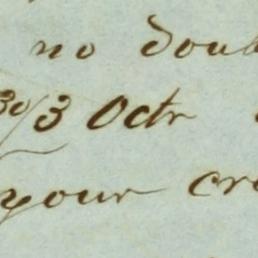 no doub
30/3 Octr
your cre